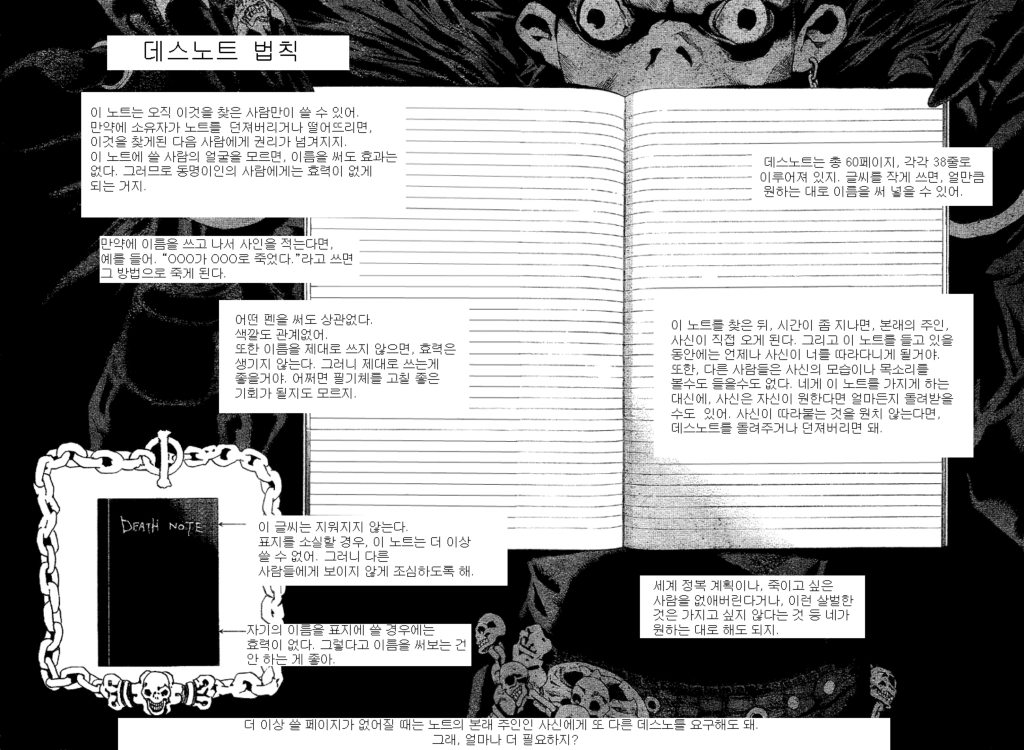 데스노트 법칙
이 노트는 오직 이것을 찾은 사람만이 쓸 수 있어.
만약에 소유자가 노트를 던져버리거나 떨어뜨리면,
이것을 찾게된 다음 사람에게 권리가 넘겨지지.
이 노트에 쓸 사람의 얼굴을 모르면, 이름을 써도 효과는
없다. 그러므로 동명이인의 사람에게는 효력이 없게
되는 거지.
데스노트는 총 60페이지, 각각 38줄로
이루어져 있지. 글씨를 작게 쓰면, 얼만큼
원하는 대로 이름을 써 넣을 수 있어.
만약에 이름을 쓰고 나서 사인을 적는다면,
예를 들어. “OOO가 OOO로 죽었다.”라고 쓰면
그 방법으로 죽게 된다.
어떤 펜을 써도 상관없다.
색깔도 관계없어.
또한 이름을 제대로 쓰지 않으면, 효력은
생기지 않는다. 그러니 제대로 쓰는게
좋을거야. 어쩌면 필기체를 고칠 좋은
기회가 될지도 모르지.
이 노트를 찾은 뒤, 시간이 좀 지나면, 본래의 주인,
사신이 직접 오게 된다. 그리고 이 노트를 들고 있을
동안에는 언제나 사신이 너를 따라다니게 될거야.
또한, 다른 사람들은 사신의 모습이나 목소리를
볼수도 들을수도 없다. 네게 이 노트를 가지게 하는
대신에, 사신은 자신이 원한다면 얼마든지 돌려받을
수도 있어. 사신이 따라붙는 것을 원치 않는다면,
데스노트를 돌려주거나 던져버리면 돼.
DEATH NOTE
이 글씨는 지워지지 않는다.
표지를 소실할 경우, 이 노트는 더 이상
쓸 수 없어. 그러니 다른
사람들에게 보이지 않게 조심하도록 해.
자기의 이름을 표지에 쓸 경우에는
효력이 없다. 그렇다고 이름을 써보는 건
안 하는 게 좋아.
세계 정복 계획이나, 죽이고 싶은
사람을 없애버린다거나, 이런 살벌한
것은 가지고 싶지 않다는 것 등 네가
원하는 대로 해도 되지.
더 이상 쓸 페이지가 없어질 때는 노트의 본래 주인인 사신에게 또 다른 데스노를 요구해도 돼.
그래, 얼마나 더 필요하지?